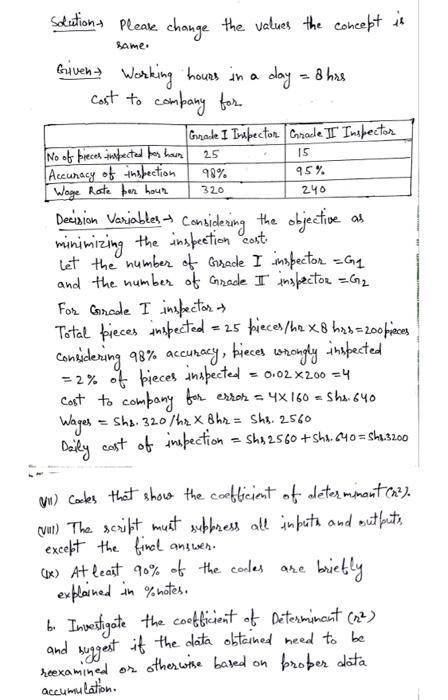 Solution→ Please change the values the concept is
same.
Given→ Working hours in a day = 8 hrs
Cost to company for
Grade I Inspector Grade II Inspector
No of pieces inspected per hour 25 15
Accuracy of inspection 98% 95%
Wage Rate per hour 320 240
Decision Variables→ Considering the objective as
minimizing the inspection cost.
Let the number of Grade I inspector = G1
and the number of Grade II inspector = G2
For Grade I inspector→
Total pieces inspected = 25 pieces/hr x 8 hrs = 200 pieces
Considering 98% accuracy, pieces wrongly inspected
= 2% of pieces inspected = 0.02 x 200 = 4
Cost to company for error = 4 x 160 = Shs. 640
Wages = Shs. 320/hr x 8hr = Shs. 2560
Daily cost of inspection = Shs 2560 + Shs. 640 = Shs. 3200
VII) Codes that show the coefficient of determinant (r²).
(VIII) The script must suppress all inputs and outputs,
except the final answer.
(IX) At least 90% of the codes are briefly
explained in % notes.
b. Investigate the coefficient of Determinant (r²)
and suggest if the data obtained need to be
reexamined or otherwise based on proper data
accumulation.